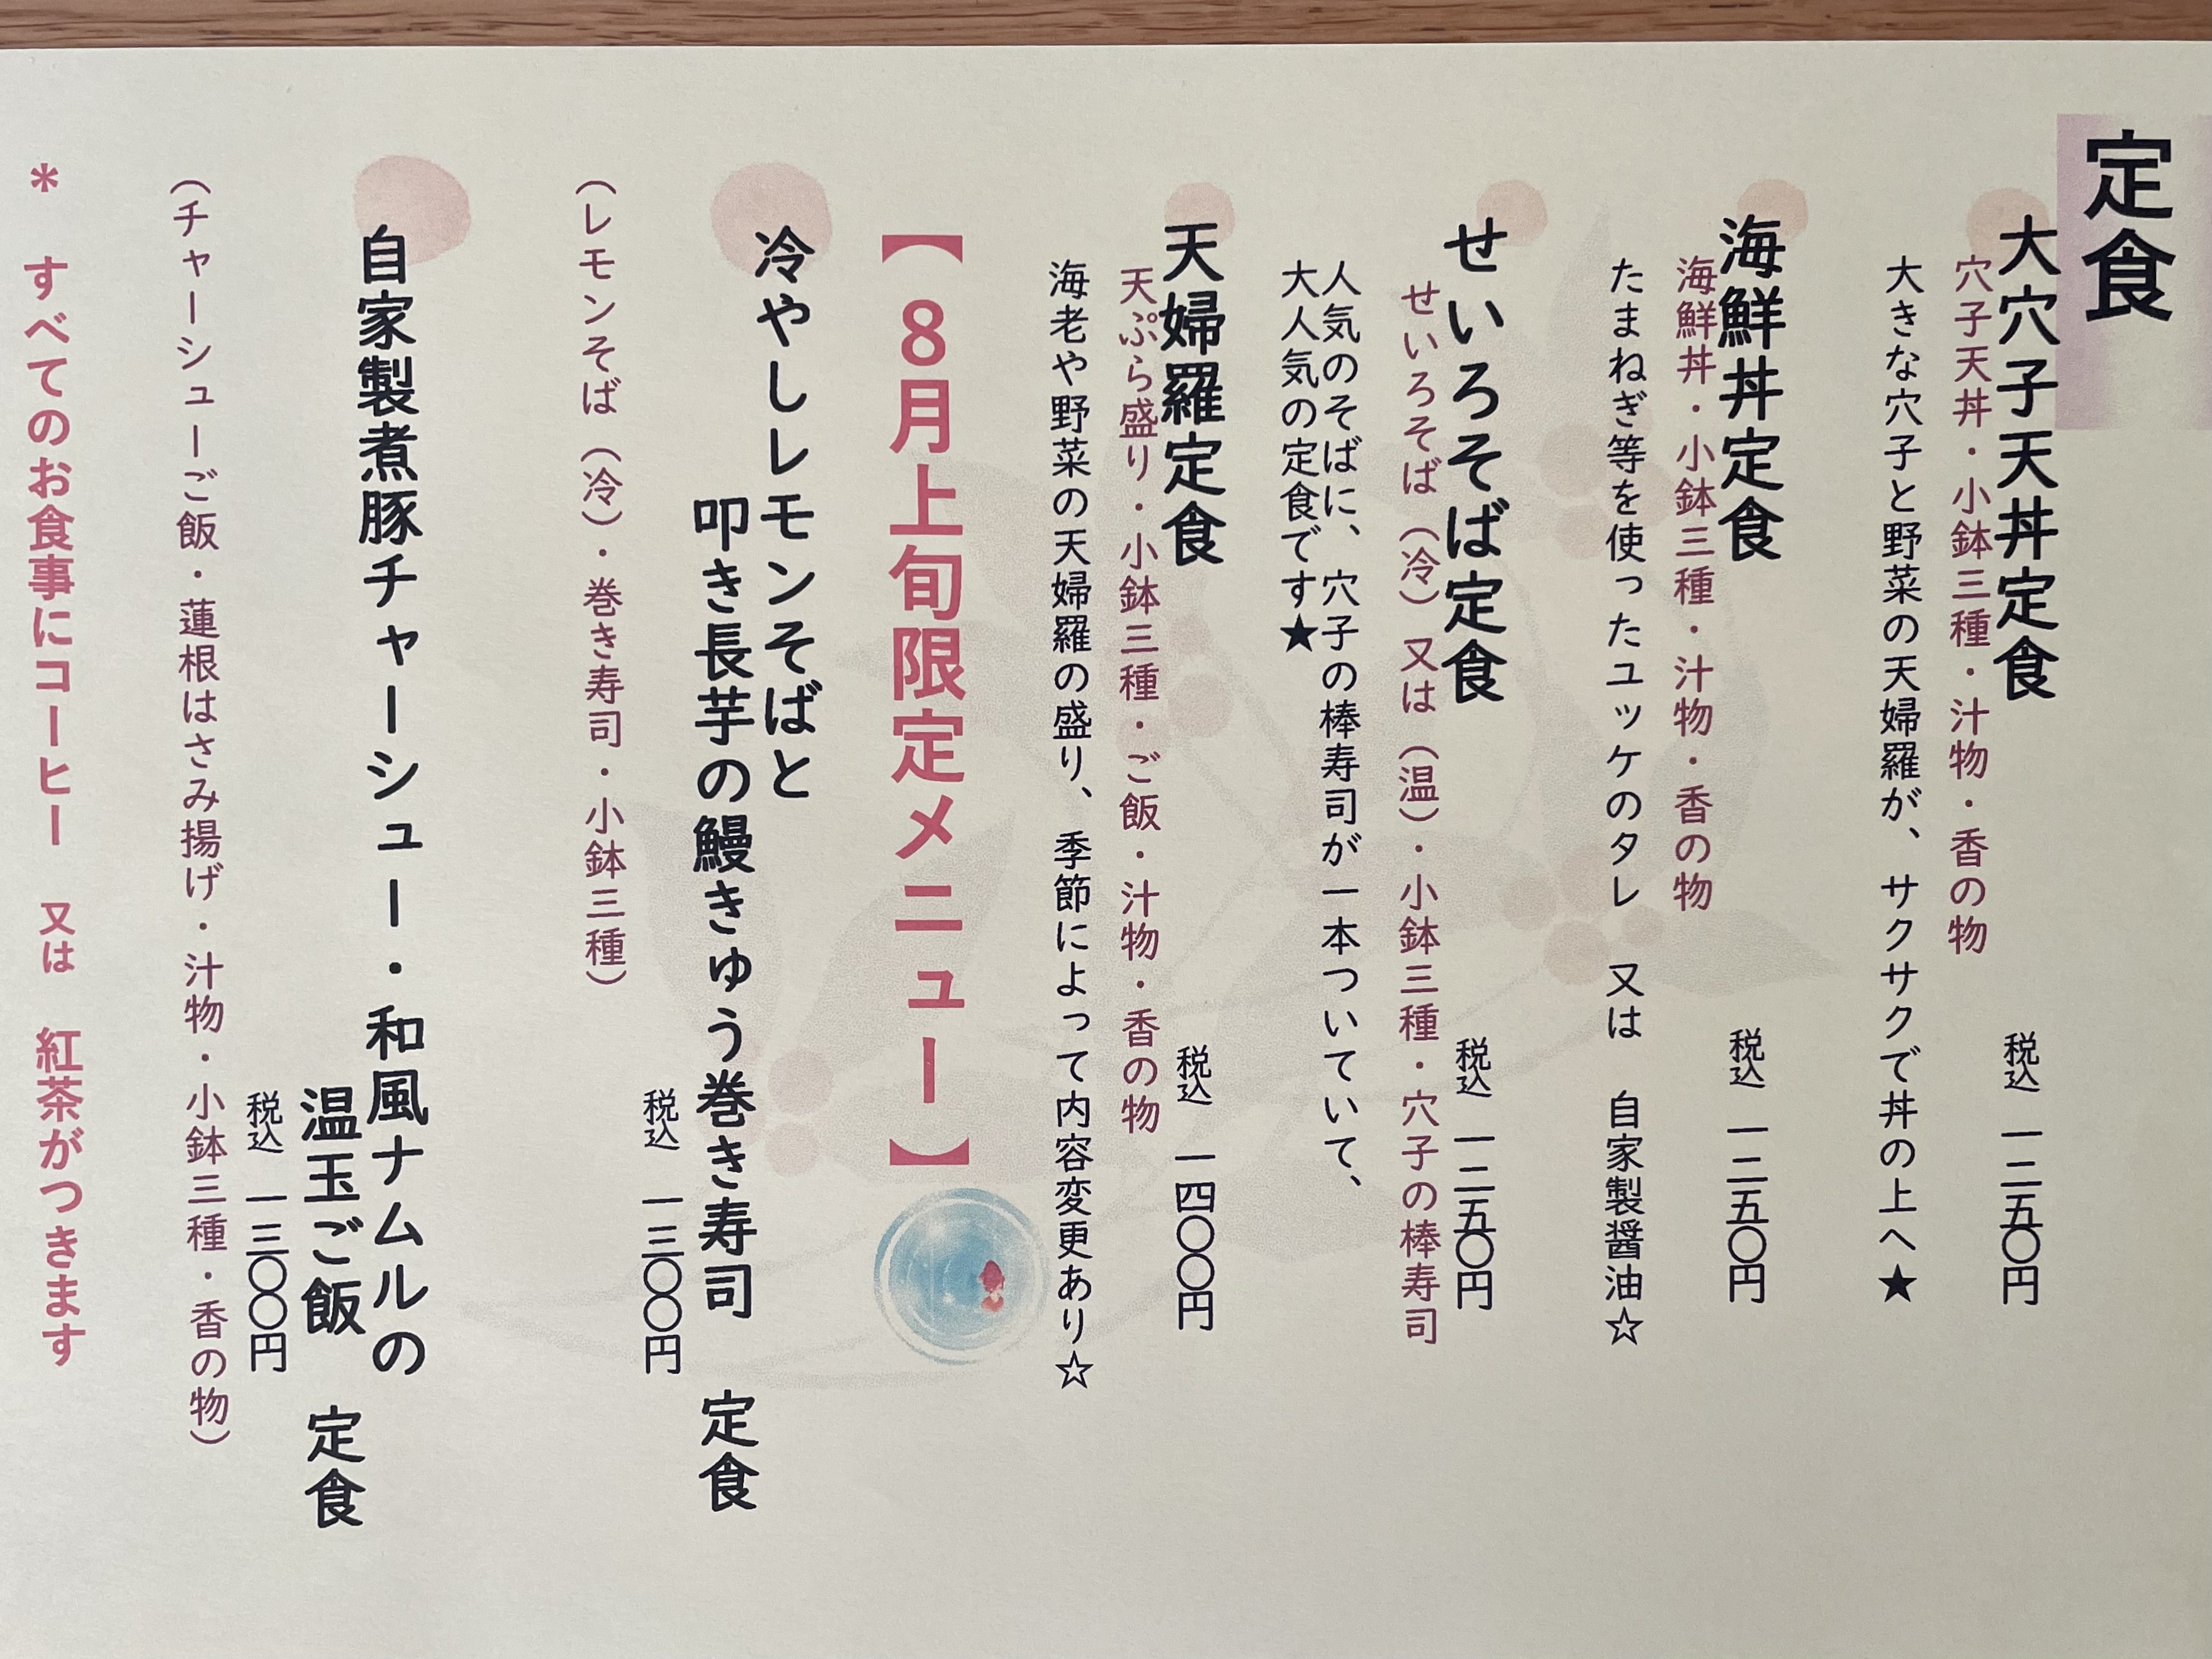 定食
大穴子天丼定食
税込 一二五〇円
穴子天丼・小鉢三種・汁物・香の物
大きな穴子と野菜の天婦羅が、サクサクで丼の上へ★
海鮮丼定食
税込 一二五〇円
海鮮丼・小鉢三種・汁物・香の物
たまねぎ等を使ったユッケのタレ 又は 自家製醤油☆
せいろそば定食
税込 一二五〇円
せいろそば（冷）又は（温）・小鉢三種・穴子の棒寿司
人気のそばに、穴子の棒寿司が一本ついていて、
大人気の定食です★
天婦羅定食
税込 一四〇〇円
天ぷら盛り・小鉢三種・ご飯・汁物・香の物
海老や野菜の天婦羅の盛り、季節によって内容変更あり☆
【８月上旬限定メニュー】
冷やしレモンそばと
叩き長芋の鰻きゅう巻き寿司 定食
税込 一三〇〇円
（レモンそば（冷）・巻き寿司・小鉢三種）
自家製煮豚チャーシュー・和風ナムルの
温玉ご飯 定食
税込 一三〇〇円
（チャーシューご飯・蓮根はさみ揚げ・汁物・小鉢三種・香の物）
＊ すべてのお食事にコーヒー 又は 紅茶がつきます